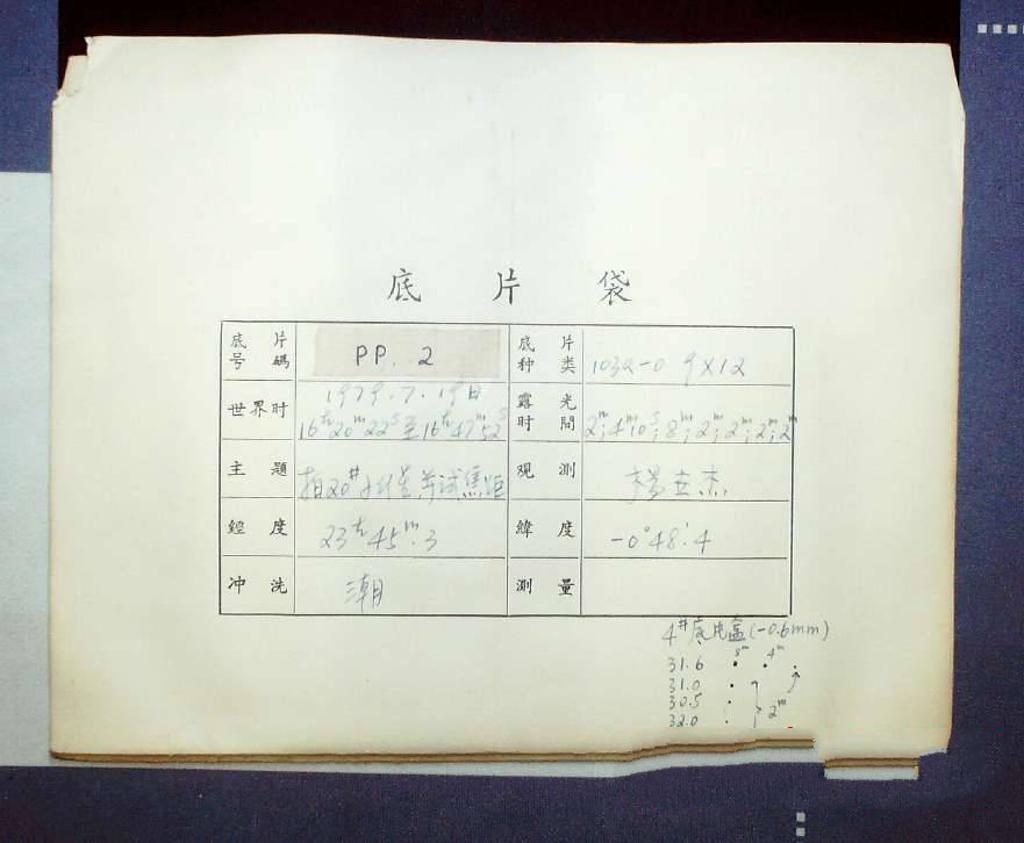 底 片 袋
底片号碼 PP. 2 底片种类 103a-0 9×12
世界时 1979.7.19日 16h20m22s至16h47m52s 露光时間 2m; 4m10s; 8m; 2m; 2m; 2m; 2m
主題 拍20# 星并试焦距 观測 杨
經度 23h45m.3 緯度 -0°48'.4
冲洗 潮 測量
4#底片盒(-0.6mm)
31.6 8m 4m
31.0
30.5 2m
32.0